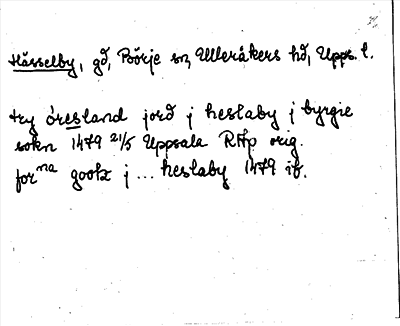 Hässelby, gd, Börje sn, Ulleråkers hd, Upps. l.
try öresland jord j heslaby j byrgie
sokn 1479 21/5 Uppsala RAp orig.
for na gootz j ... heslaby 1479 ib.